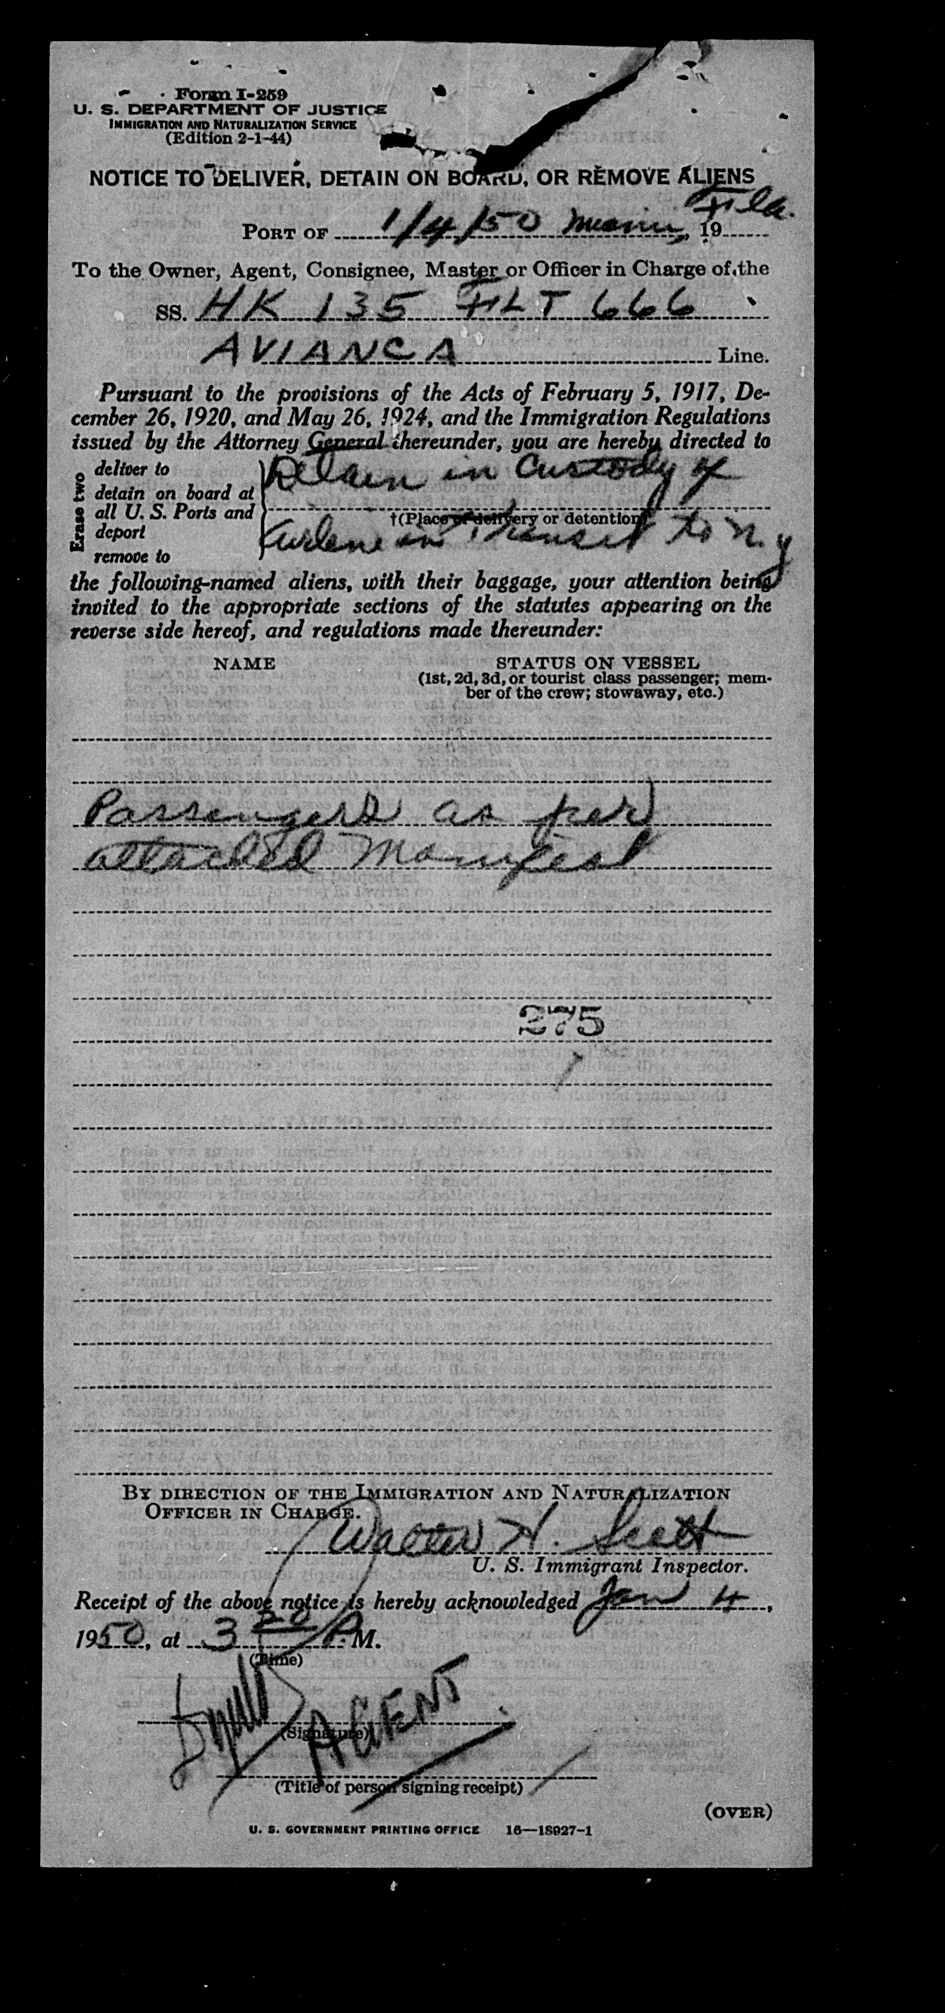 Form I-259
U. S. DEPARTMENT OF JUSTICE
IMMIGRATION AND NATURALIZATION SERVICE
(Edition 2-1-44)
NOTICE TO DELIVER, DETAIN ON BOARD, OR REMOVE ALIENS
PORT OF 1/4/50 Miami, Fla. 19
To the Owner, Agent, Consignee, Master or Officer in Charge of the
SS. HK 135 FLT 666
AVIANCA Line.
Pursuant to the provisions of the Acts of February 5, 1917, De-
cember 26, 1920, and May 26, 1924, and the Immigration Regulations
issued by the Attorney General thereunder, you are hereby directed to
Erase two
deliver to
detain on board at
all U. S. Ports and
deport
remove to
Detain in Custody of
†(Place of delivery or detention)
Airline in Transit to N.Y
the following-named aliens, with their baggage, your attention being
invited to the appropriate sections of the statutes appearing on the
reverse side hereof, and regulations made thereunder:
NAME STATUS ON VESSEL
(1st, 2d, 3d, or tourist class passenger; mem-
ber of the crew; stowaway, etc.)
Passengers as per
attached Manifest
275
BY DIRECTION OF THE IMMIGRATION AND NATURALIZATION
OFFICER IN CHARGE.
Walter H. Scott
U. S. Immigrant Inspector.
Receipt of the above notice is hereby acknowledged Jan 4,
1950, at 3 20 P. M.
(Time)
(Signature)
AGENT
(Title of person signing receipt)
(OVER)
U. S. GOVERNMENT PRINTING OFFICE 16—18927-1